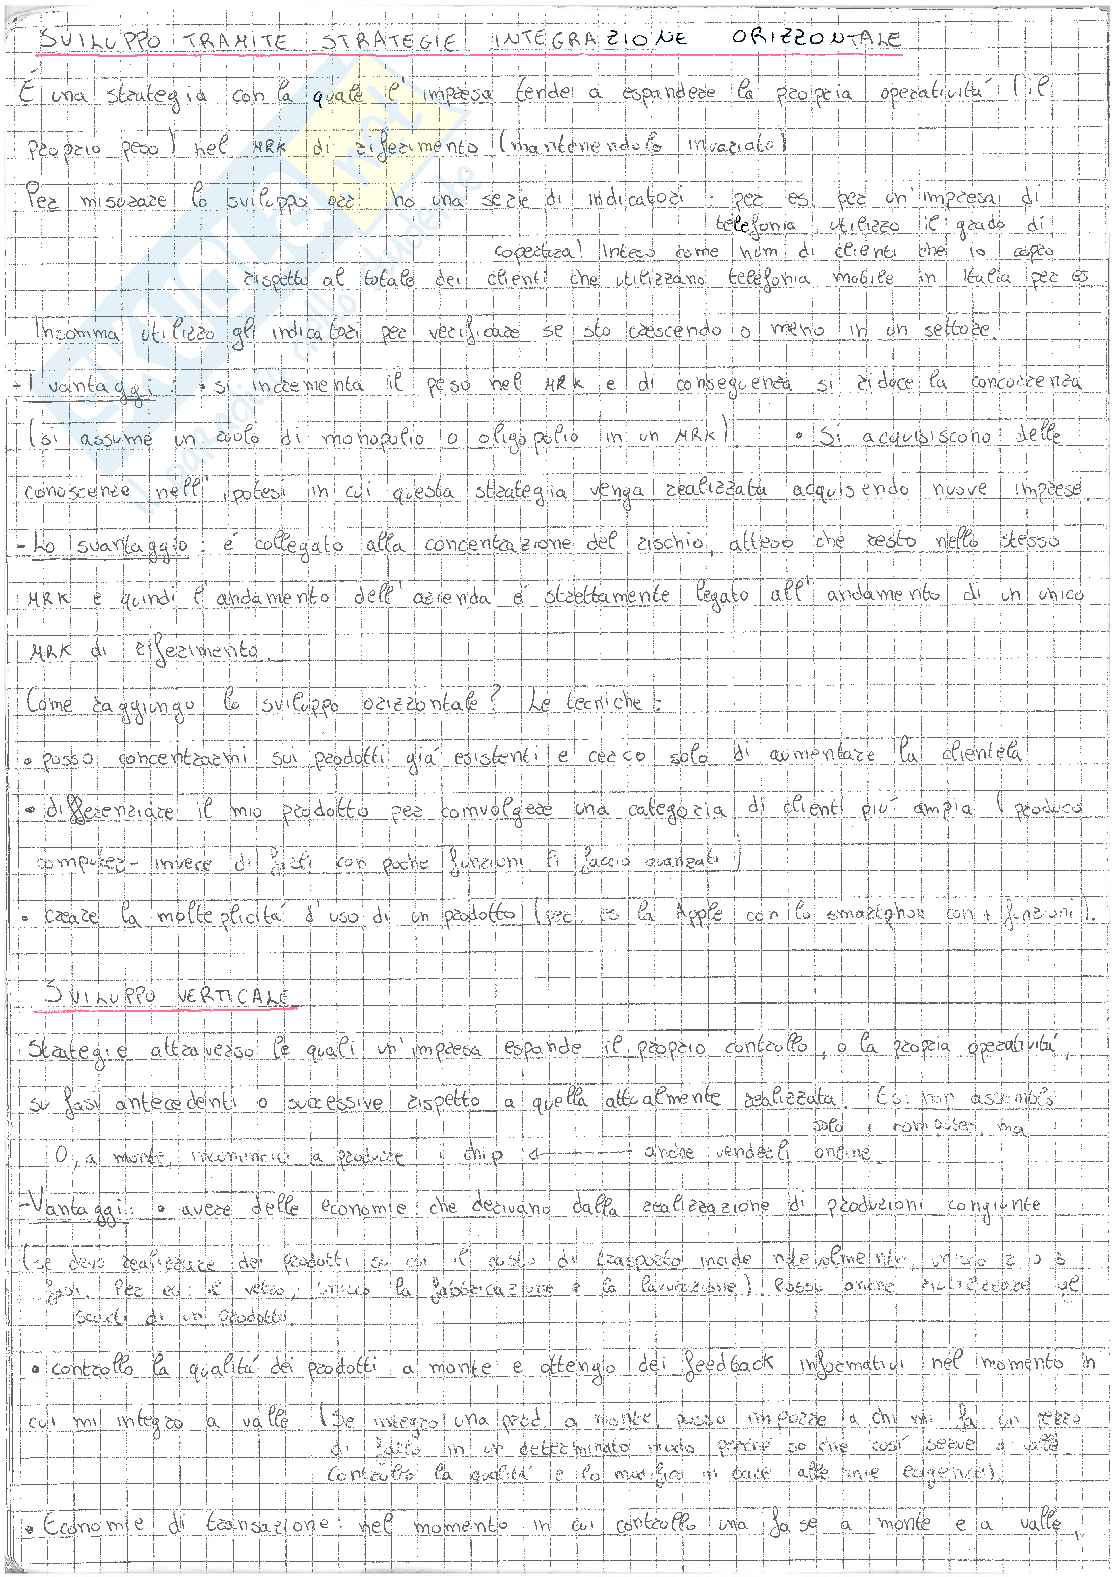 SVILUPPO TRAMITE STRATEGIE INTEGRAZIONE ORIZZONTALE
É una strategia con la quale l'impresa tende a espandere la propria operatività (il
proprio peso) nel MRK di riferimento (mantenendolo invariato)
Per misurare lo sviluppo orz ho una serie di indicatori: per es per un'impresa di
telefonia utilizzo il grado di
copertura! Inteso come num di clienti che io copro
rispetto al totale dei clienti che utilizzano telefonia mobile in Italia per es
Insomma utilizzo gli indicatori per verificare se sto crescendo o meno in un settore.
+ I vantaggi: • si incrementa il peso nel MRK e di conseguenza si riduce la concorrenza
(si assume un ruolo di monopolio o oligopolio in un MRK) • Si acquisiscono delle
conoscenze nell'ipotesi in cui questa strategia venga realizzata acquisendo nuove imprese.
- Lo svantaggio: é collegato alla concentrazione del rischio, atteso che resto nello stesso
MRK e quindi l'andamento dell'azienda é strettamente legato all'andamento di un unico
MRK di riferimento.
Come raggiungo lo sviluppo orizzontale? Le tecniche:
• posso concentrarmi sui prodotti giá esistenti e cerco solo di aumentare la clientela
• differenziare il mio prodotto per coinvolgere una categoria di clienti piú ampia (produco
computer - invece di farli con poche funzioni li faccio avanzati)
• creare la molteplicitá d'uso di un prodotto (per es la Apple con lo smartphon con + funzioni).
SVILUPPO VERTICALE
Strategie attraverso le quali un'impresa espande il proprio controllo, o la propria operativitá,
su fasi antecedenti o successive rispetto a quella attualmente realizzata. Es: non assemblo
solo i computer, ma
O, a monte, incomincio a produrre i chip anche venderli online
- Vantaggi: • avere delle economie che derivano dalla realizzazione di produzioni congiunte
(se devo realizzare dei prodotti su cui il costo di trasporto incide notevolmente, unisco 2 o 3
fasi. Per es il vetro, unisco la fabbricazione e la lavorazione) Posso anche riutilizzare gli
scarti di un prodotto.
• controllo la qualitá dei prodotti a monte e ottengo dei feedback informativi nel momento in
cui mi integro a valle (Se integro una prod a monte, posso imporre a chi mi fa un pezzo
di farlo in un determinato modo perché so che cosí serve a valle
Controllo la qualitá e la modifico in base alle mie esigenze).
• Economie di transazione: nel momento in cui controllo una fase a monte e a valle,